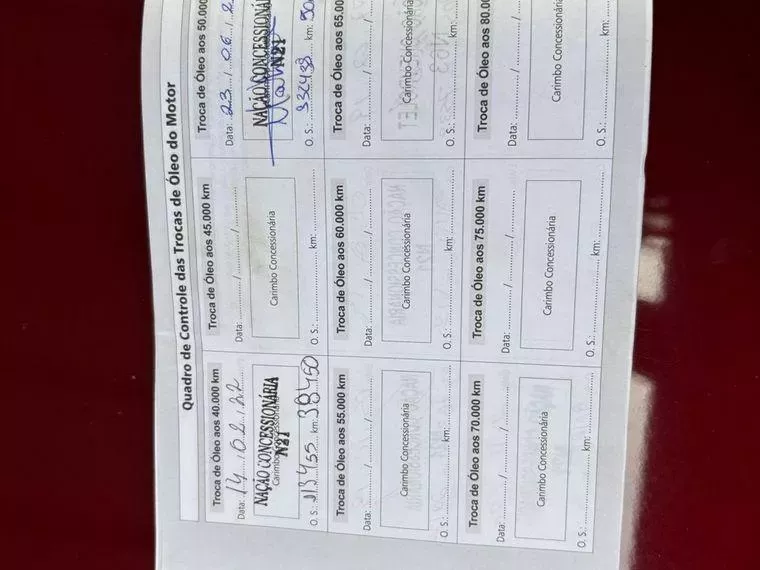 Quadro de Controle das Trocas de Óleo do Motor
Troca de Óleo aos 40.000 km
Data: 14 / 02 / 22
NAÇÃO CONCESSIONÁRIA
N21
O. S.: 113455 km: 38450
Troca de Óleo aos 45.000 km
Data: ........... / ........... / ...........
Carimbo Concessionária
O. S.: ........... km: ...........
Troca de Óleo aos 50.000
Data: 23 / 06 / 2
NAÇÃO CONCESSIONÁRI
N21
O. S.: 332438 km: 50
Troca de Óleo aos 55.000 km
Data: ........... / ........... / ...........
Carimbo Concessionária
O. S.: ........... km: ...........
Troca de Óleo aos 60.000 km
Data: ........... / ........... / ...........
Carimbo Concessionária
O. S.: ........... km: ...........
Troca de Óleo aos 65.00
Data: ........... / ...........
Carimbo Concessionária
O. S.: ........... km:
Troca de Óleo aos 70.000 km
Data: ........... / ........... / ...........
Carimbo Concessionária
O. S.: ........... km: ...........
Troca de Óleo aos 75.000 km
Data: ........... / ........... / ...........
Carimbo Concessionária
O. S.: ........... km: ...........
Troca de Óleo aos 80.00
Data: ........... / ...........
Carimbo Concessionária
O. S.: ........... km: